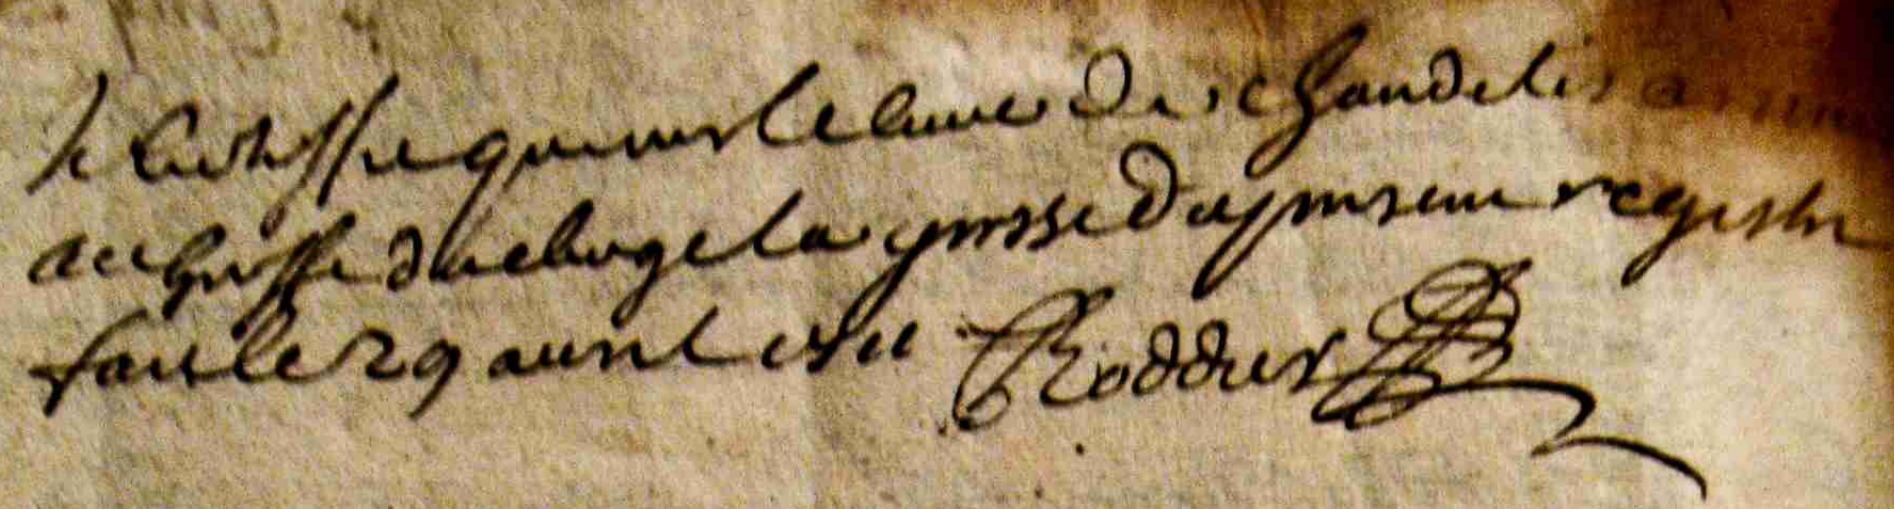 Je certiffie que monsr le cure de chandelis a remis
au greffe du bage la grosse du present registre
fait le 29 avril
Roddier